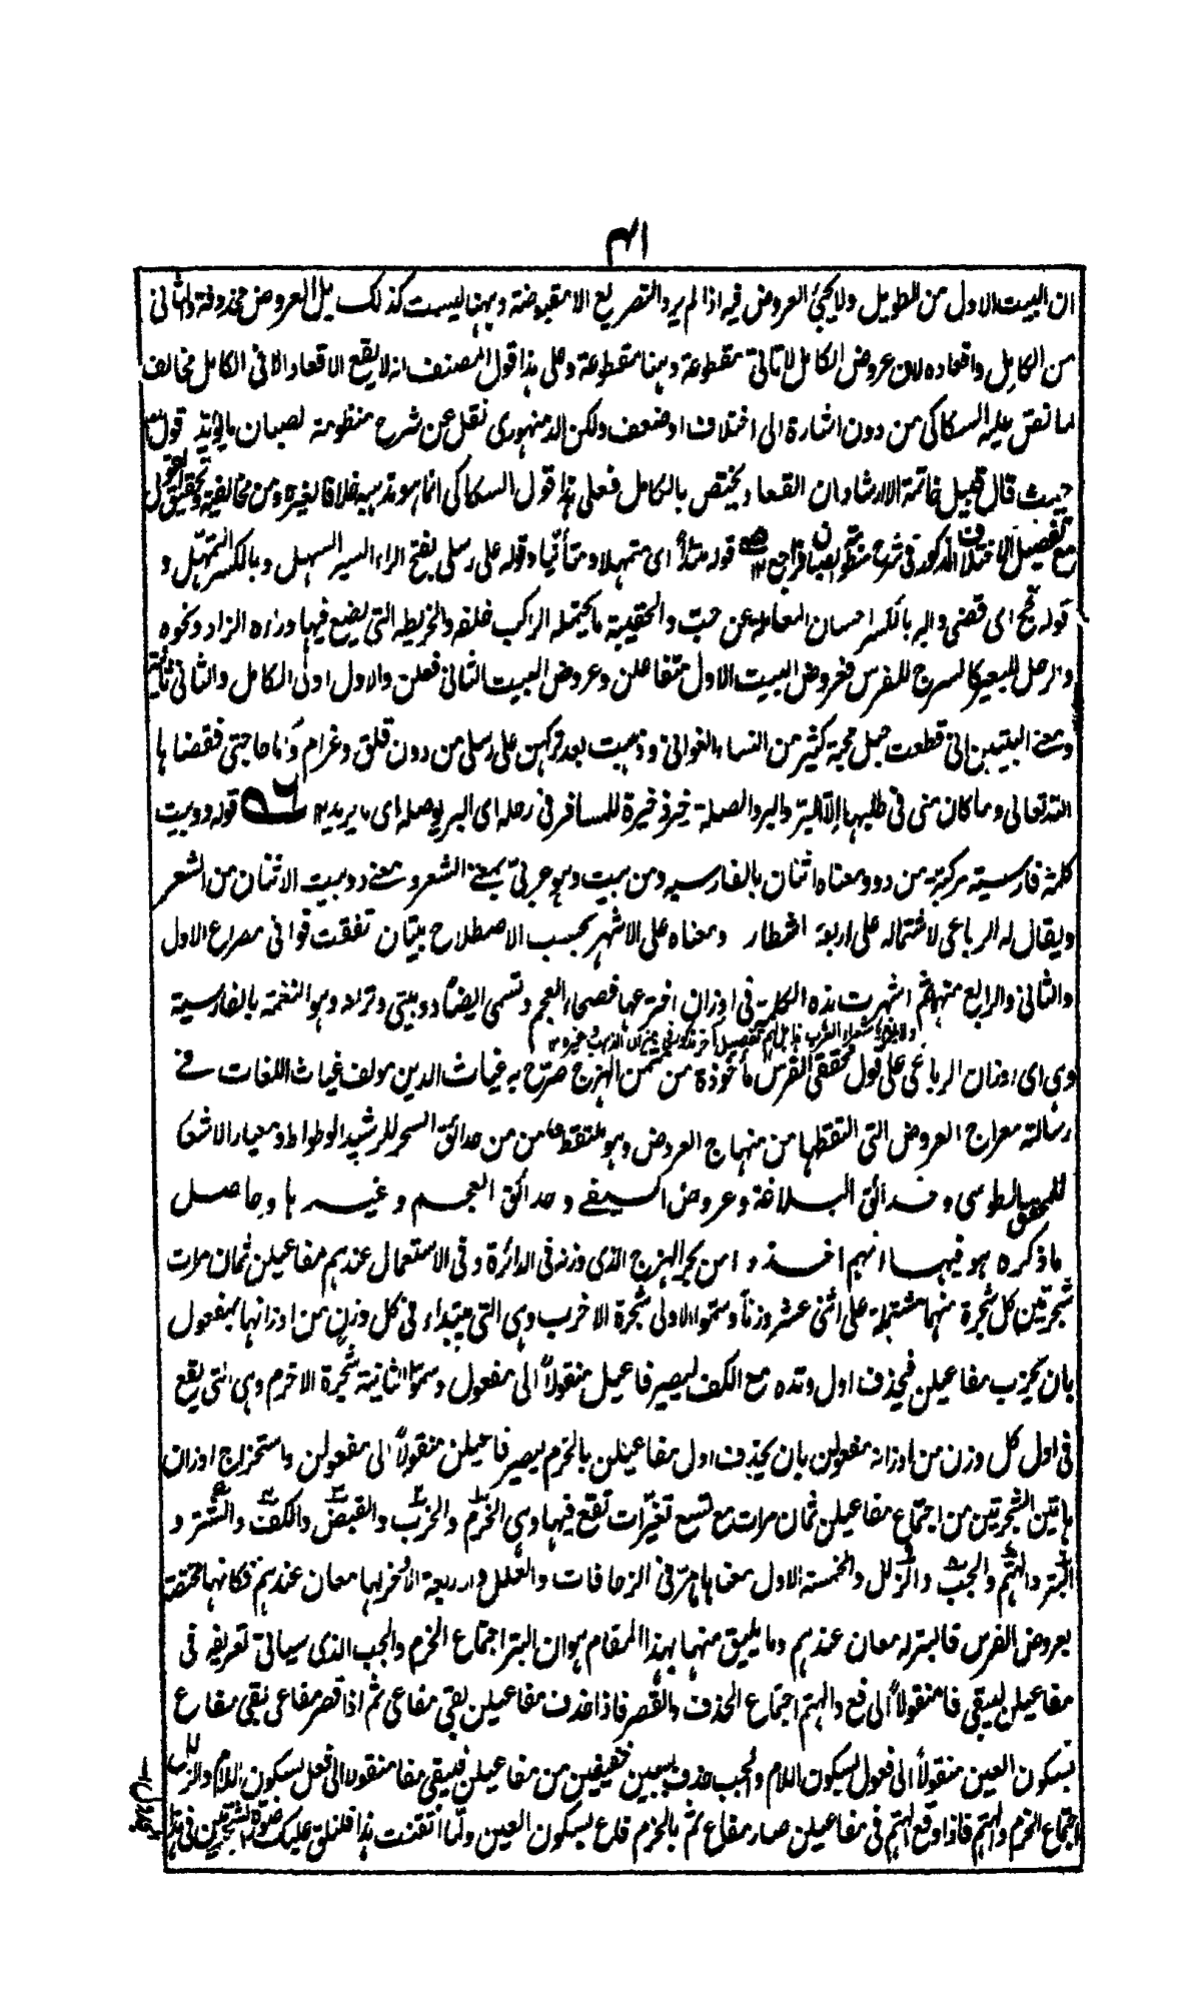 ان البيت الاول من الطويل ولا يجئ العروض فيه اذا لم يرد التصريع الا مقبوضة وههنا ليست كذلك بل العروض محذوفة والثانى
من الكامل واقعاده لان عروض الكامل لا تاتى مقطوعة وههنا مقطوعة وعلى هذا قول المصنف انه لا يقع الاقعاد الا فى الكامل مخالف
لما نص عليه السكاكى من دون اشارة الى اختلاف او ضعف ولكن الدمنهورى نقل عن شرح منظومة لصبان ما يؤيد قول
حيث قال قبيل خاتمة الارشاد ان القعاد يختص بالكامل فعلى هذا قول السكاكى انما هو مذهبه خلافا لغيره ومن مخالفيه وتحقيق
مع تفصيل الاختلاف المذكور فى شرح منظومة الصبان فراجع ١٢ قوله متئدا اى متمهلا ومتأنيا وقوله على رسلى بفتح الراء السير السهل وبالكسر التمهل و
قوله نجح اى قضى والبر بالكسر احسان المعامله عن حب والحقيبة ما يحتمله الراكب خلفه والخريطه التى يضع فيها وراءه الزاد ونحوه
والرحل للبعير كالسرج للفرس فعروض البيت الاول متفاعلن وعروض البيت الثانى فعلن والاول اولى الكامل والثانى
ومعنى البيتين انى قطعت حبل محبة كثير من النساء الغوانى وذهبت بعد تركهن على رسلى من دون قلق وغرام وكم حاجتى فقضاها
الله تعالى وما كان منى فى طلبها الا البر والبر والصلة خير ذخيرة للمسافر فى رحله اى البر يوصله اى ما يريد ١٢ قوله دوبيت
كلمة فارسية مركبة من دو ومعناه اثنان بالفارسيه ومن بيت وهو عربى بمعنى الشعر ومعنى دوبيت الاثنان من الشعر
ويقال له الرباعى لاشتماله على اربعة اشطار ومعناه على الاشهر بحسب الاصطلاح بيتان تفقت قوافى مصراع الاول
والثانى والرابع منهما ثم اشتهرت هذه الكلمة فى اوزان اخترعها فصحاء العجم وتسمى ايضا دوبيتى وترانه وهو النغمة بالفارسية
وهى اى اوزان الرباعى على قول محققى الفرس مأخوذة من مثمن الهزج صرح به غياث الدين مولف غياث اللغات فى
رسالته معراج العروض التى التقطها من منهاج العروض وهو ملتقط من حدائق السحر للرشيد الوطواط ومعيار الاشعا
للمحقق الطوسى و حدائق البلاغة وعروض السيفى و حدائق العجم وغيرها وحاصل
ما ذكره هو فيها انهم اخذوا من بحر الهزج الذى وزنه فى الدائرة وفى الاستعمال عندهم مفاعيلن ثمان مرات
شجرتين كل شجرة منهما مشتملة على اثنى عشر وزنا وسموا الاولى شجرة الاخرب وهى التى يبتداء فى كل وزن من اوزانها بمفعول
بان يخرب مفاعيلن فيحذف اول وتده مع الكف ليصير فاعيل منقولا الى مفعول وسموا الثانية شجرة الاخرم وهى التى يقع
فى اول كل وزن من اوزانه مفعولن بان يحذف اول مفاعيلن بالخرم ليصير فاعيلن منقولا الى مفعولن واستخراج اوزان
هاتين الشجرتين من اجتماع مفاعيلن ثمان مرات مع تسع تغيرات تقع فيها وهى الخرم والخرب والقبض والكف والشتر و
البتر والهتم والجب والزلل والخمسة الاول معناها مر فى الزحافات والعلل واربعة الاخر لها معان عندهم فكانها مختصة
بعروض الفرس فالبتر له معان عندهم وما يليق منها بهذا المقام هو ان البتر اجتماع الخرم والجب الذى سياتى تعريفه فى
مفاعيلن ليبقى فا منقولا الى فع والهتم اجتماع الحذف والقصر فاذا حذف مفاعيلن بقى مفاعى ثم اذا قصر مفاعى بقى مفاع
بسكون العين منقولا الى فعول بسكون اللام والجب حذف سببين خفيفين من مفاعيلن فيبقى مفا منقولا الى فعل بسكون اللام والزلل
اجتماع الخرم والهتم فاذا وقع الهتم فى مفاعيلن صار مفاع ثم بالخرم فاع بسكون العين ولما اتقنت هذا فلنلق عليك صورة الشجرتين فى هذا